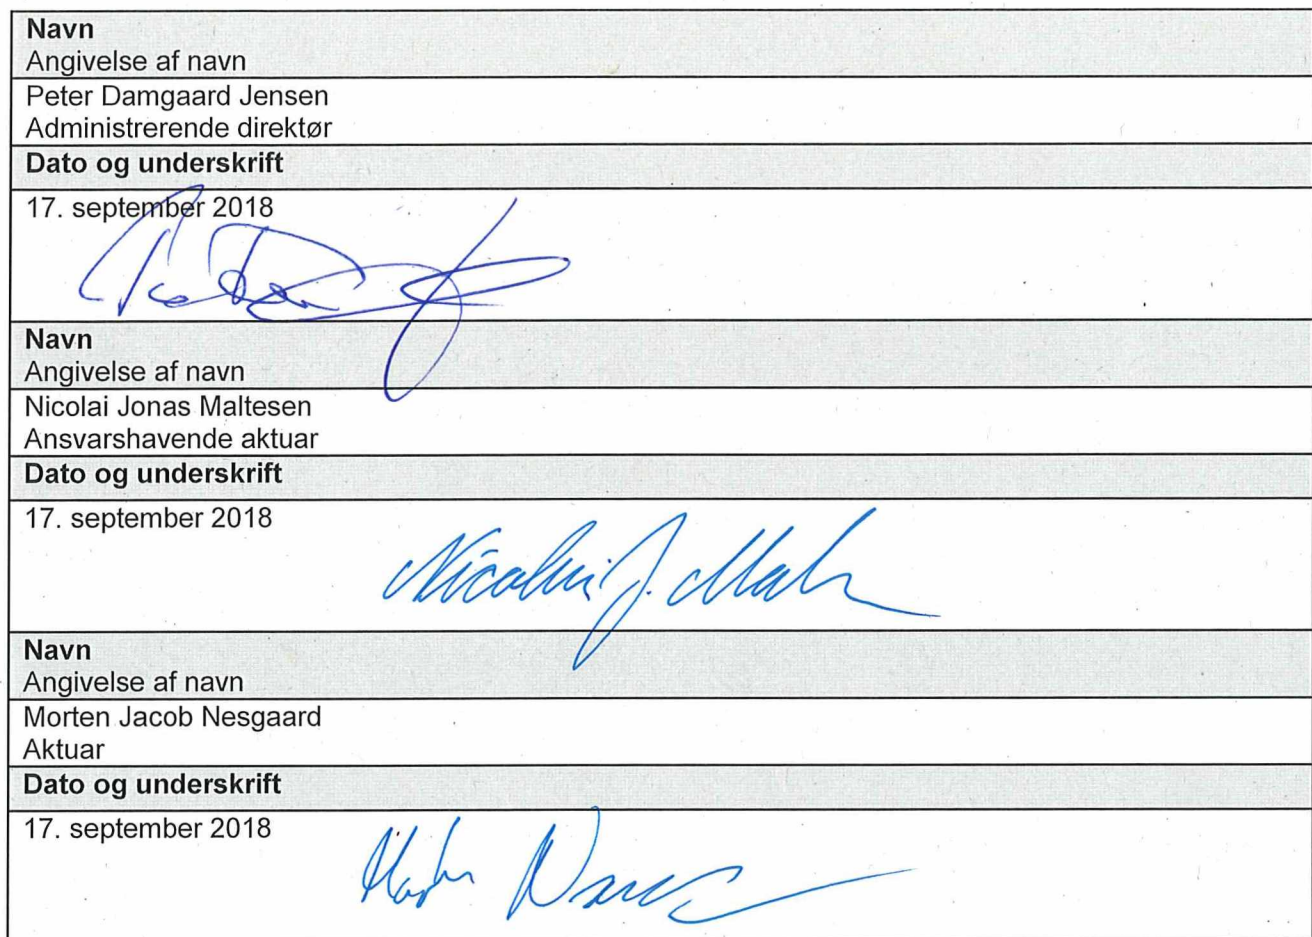 Navn
Angivelse af navn
Peter Damgaard Jensen
Administrerende direktør
Dato og underskrift
17. september 2018
Navn
Angivelse af navn
Nicolai Jonas Maltesen
Ansvarshavende aktuar
Dato og underskrift
17. september 2018
Nicolai J.
Navn
Angivelse af navn
Morten Jacob Nesgaard
Aktuar
Dato og underskrift
17. september 2018